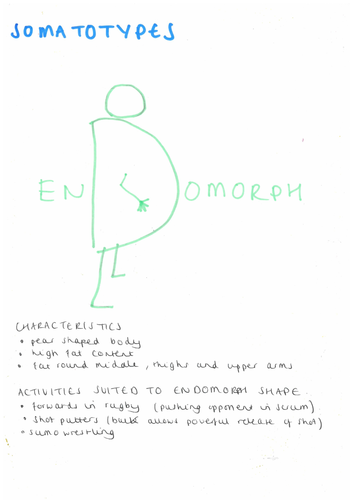 SOMATOTYPES
ENDOMORPH
CHARACTERISTICS
• pear shaped body
• high fat content
• fat round middle, thighs and upper arms
ACTIVITIES SUITED TO ENDOMORPH SHAPE
• forwards in rugby (pushing opponent in scrum).
• shot putters (bulk allows powerful release of shot)
• sumo wrestling